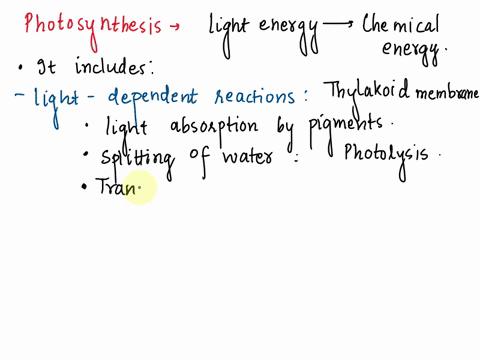 Photosynthesis → Light energy → Chemical energy.
• It includes:
- light - dependent reactions : Thylakoid membrane
• light absorption by pigments.
• Splitting of water : Photolysis.
• Tran